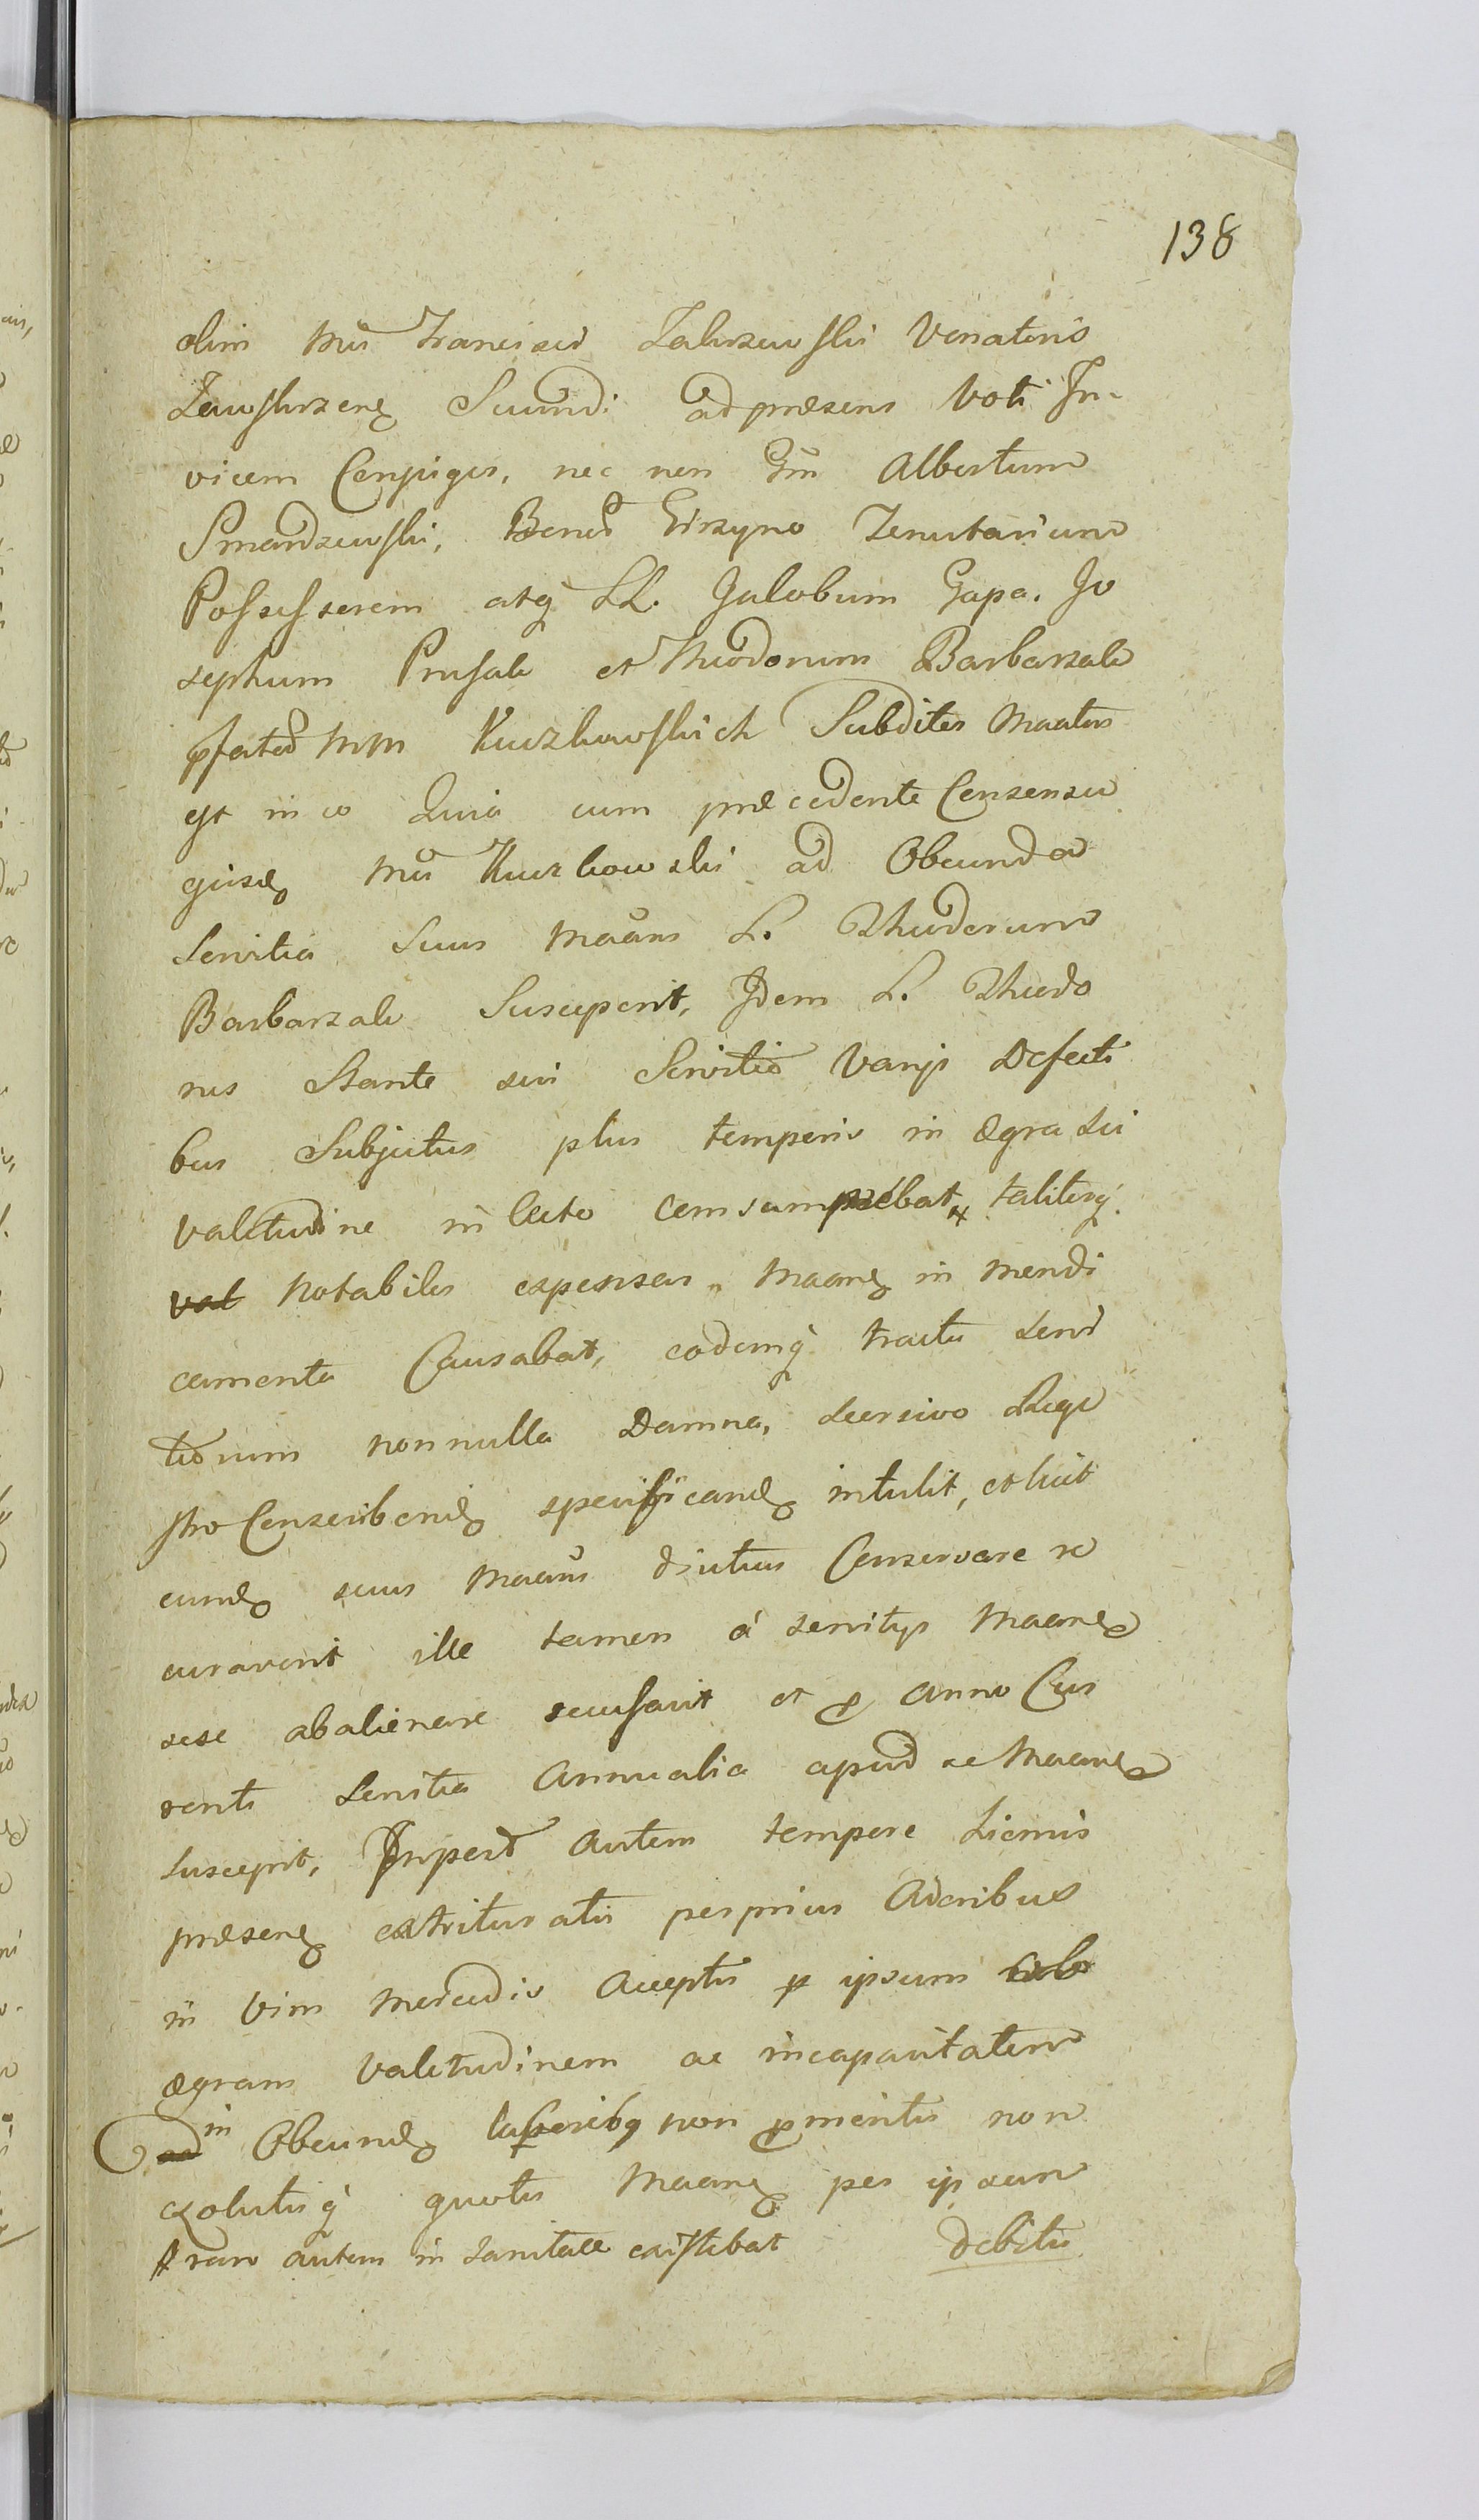 138
olim Mci Francisci Zakrzewski Venatoris
Zawskrzen Secundi ad præsens Voti In-
vicem Conjuges, nec non Gm Albertum
Smardzewski, Bonor Girzyno Tenutarium
Possessorem atq LL. Jakobum Gapa. Jo
sephum Prusak et Theodorum Barbarzak
pfator MM Kurzkowskich Subditos Maatus
est in eo Quia cum præcedente Consensu
ejusd Mci Kurzkowski ad Obeunda
Servitia suus Maans L. Theodorum
Barbarzak Susceperit, Idem L. Theodo
rus Stante sui Servitio Varijs Defecti
bus Subjectus plus temporis in ægra sui
valetudine in lecto consumebat, taliterq
val Notabiles expensas Maand in medi
camenta Causabat, eodemq tractu servi
tiorum nonnulla Damna, seorsivo Regi
stro Conscribend specificand intulit, et licet
eund suus Maans diutius Conservare re
curaverit ille tamen á servitys Maand
sese abalienare recusavit et p anno Cur
renti Servitia Annualia apud se Maand
suscepit, Insper autem tempore hiemis
præsen extrituratis perprius Aderibus
in Vim Mercedis Acceptis p ipsum ob
ægram Valetudinem ac incapacitatem
ad in Obeund laboribq non pmeritis non
exolutisq quotis Maand per ipsum
# raro autem in sanitate existebat
debitis